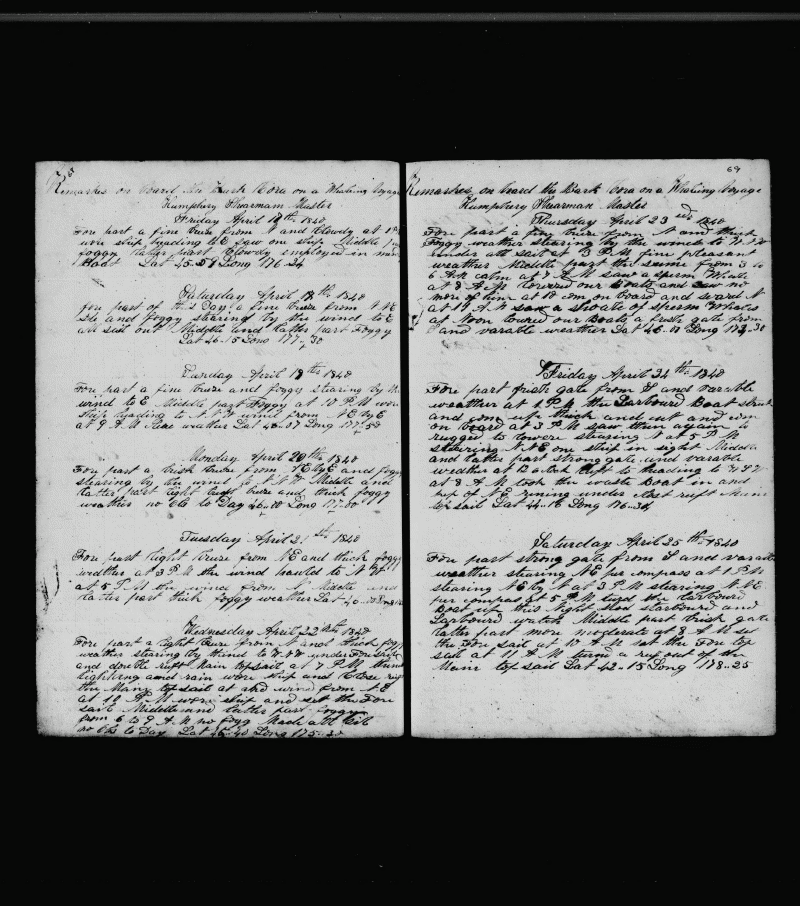 68
Remarks on Board the Bark Cora on a Whaling Voyage
Humphery Shearman Master
Friday April 17th 1840
Fore part a fine breze from N and Clowdy at 1 PM
wore ship heading to E saw one ship Middle part
foggy latter part Clowdy employed in
Boat Lat 45-59 Long 176-24
Saturday April 18th 1840
fore part of this Day a fine breze from N.N.E
and foggy stearing by the wind to E
Middle and latter part Foggy
Lat 46-15 Long 177-30
Sunday April 19th 1840
Fore part a fine breze and foggy stearing by the
wind to E Middle part Foggy at 10 P M wore
ship heading to N.N.W wind from N.E by E
at 9 A M weather Lat 46-07 Long 177-58
Monday April 20th 1840
Fore part a brisk breze from N E by E and foggy
stearing by the wind to N.N.W Middle and
latter part light breze and thick foggy
weather no obs to Day 46-00 Long 177-00
Tuesday April 21st 1840
Fore part light breze from N.E and thick foggy
weather at 3 P.M the wind hauled to N
at 5 P M the wind from N Middle and
latter part thick foggy weather Lat
Wednesday April 22nd 1840
Fore part a light breze from N and thick foggy
weather stearing by the wind to W.N.W under Fore sail
and double reeft Main topsail at 7 P.M thunder
lightning and rain wore ship and Close reeft
the Main topsail at and wind from N E
at 10 A M wore ship and set the Fore
sail Middle and latter part foggy
from 6 to 9 A.M no fogg Made all Sail
no obs to Day Lat 46-40 Long 175-20
69
Remarkes on board the Bark Cora on a Whaling Voyage
Humphery Shearman Master
Thursday April 23rd 1840
Fore part a fine breze from N and thick
Foggy weather stearing by the wind to W.N.W
under all sail at 3 P M fine pleasant
weather Middle part the same from 3 to
6 Ack calm at 7 A M saw a sperm Whale
at 8 A M lowered our boats and saw no
more of him at 10 com on board and steard N
at 11 A M saw a shoale of sperm Whales
at Noon lowred our Boats a fresh gale from
S and varable weather Lat 46-01 Long 177-30
Friday April 24th 1840
Fore part fresh gale from S and varable
weather at 1 P.M the Larboard Boat struck
and com up thick and cut and com
on board at 3 P M saw them again to
rugged to lowere stearing N at 5 P M
stearing N.N.E one ship in sight Middle
and latter part strong gale and varable
weather at 12 o clock luft to heading to W.S.W
at 8 A M took the waste Boat in and
kep of N E runing under close reeft Main
top sail Lat 44-16 Long 176-30
Saturday April 25th 1840
Fore part strong gale from S and varable
weather stearing N.E per compass at 1 P M
stearing N E by N at 3 P M stearing N.N.E
per compas at 5 P M the Larboard
Boat up this Night Stood starboard and
Larboard watch Middle part brisk gale
latter part more moderate at 8 A M set
the Fore sail at 10 A M set the Fore top
sail at 11 A M turnd a reef out of the
Main top sail Lat 42-15 Long 178-25